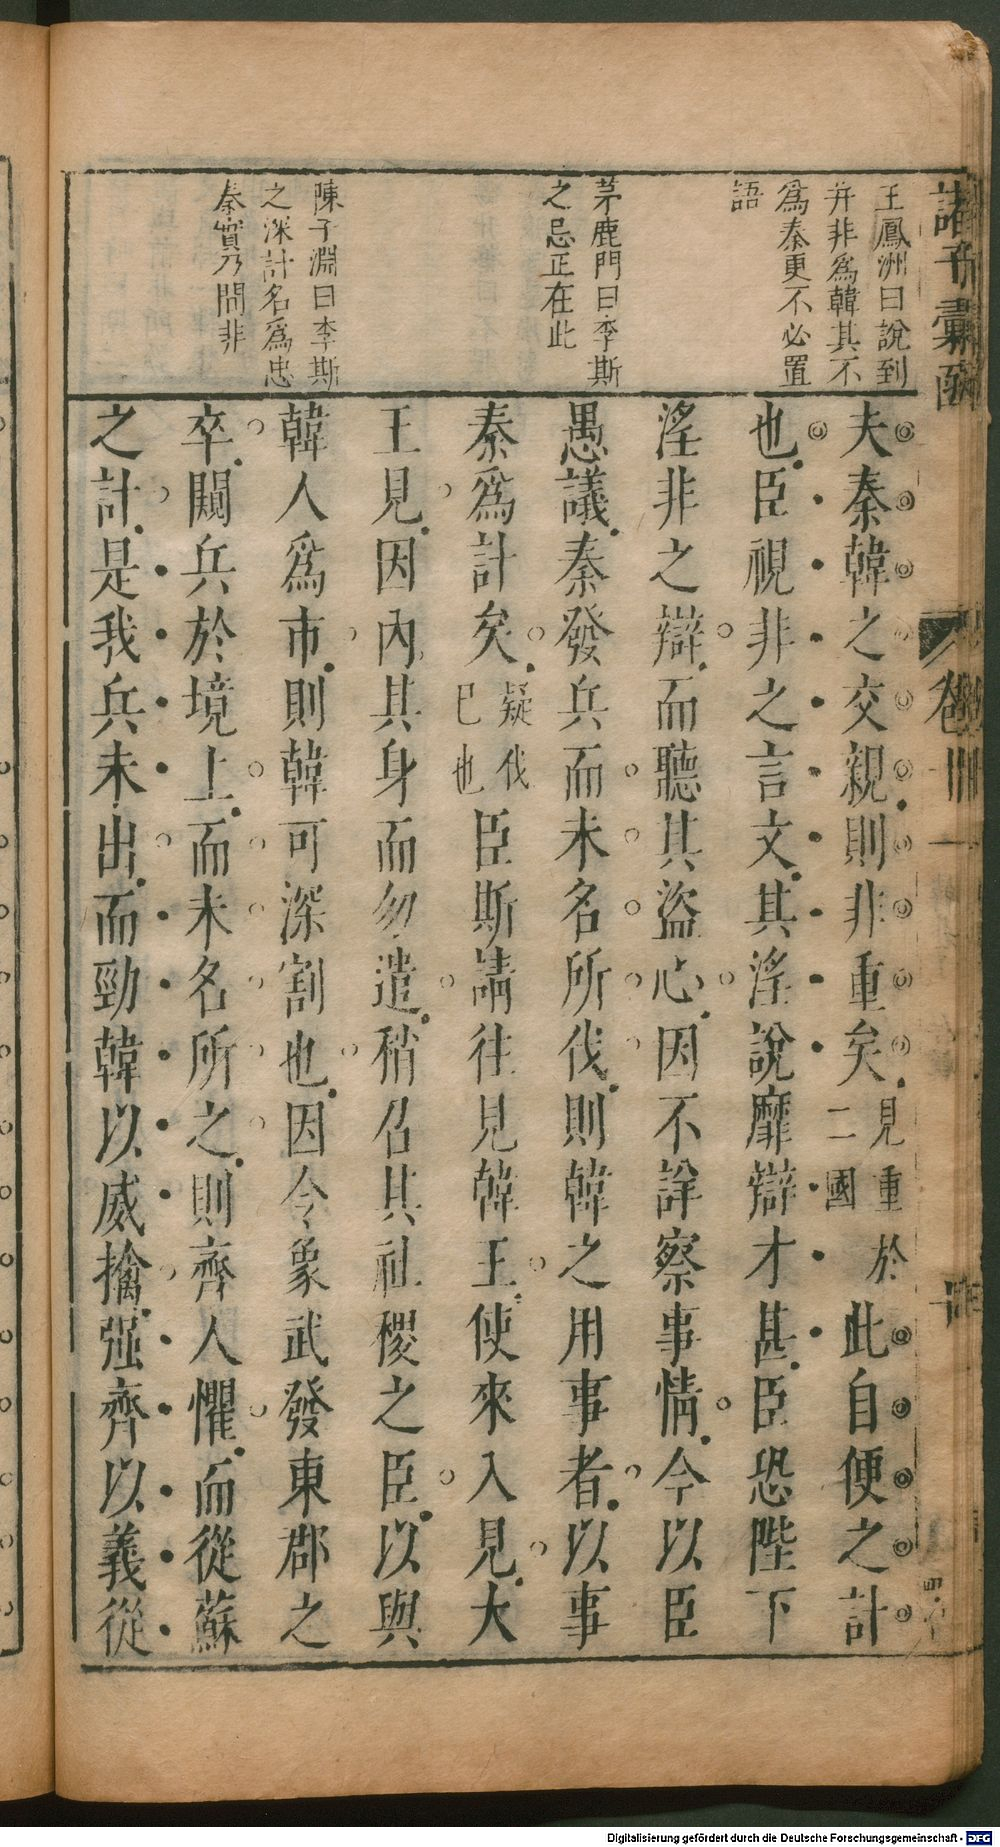 諸子彙函
卷
王鳳洲曰說到
并非爲韓其不
爲秦更不必置
語
茅鹿門曰李斯
之忌正在此
陳子淵曰李斯
之深計名爲忠
秦實乃間非
夫秦韓之交親則非重矣見重於二國此自便之計
也臣視非之言文其淫說靡辯才甚臣恐陛下
淫非之辯而聽其盜心因不詳察事情今以臣
愚議秦發兵而未名所伐則韓之用事者以事
秦爲計矣疑伐已也臣斯請往見韓王使來入見大
王見因內其身而勿遣稍召其社稷之臣以與
韓人爲市則韓可深割也因令象武發東郡之
卒闚兵於境上而未名所之則齊人懼而從蘇
之計是我兵未出而勁韓以威擒强齊以義從
Digitalisierung gefördert durch die Deutsche Forschungsgemeinschaft - DFG